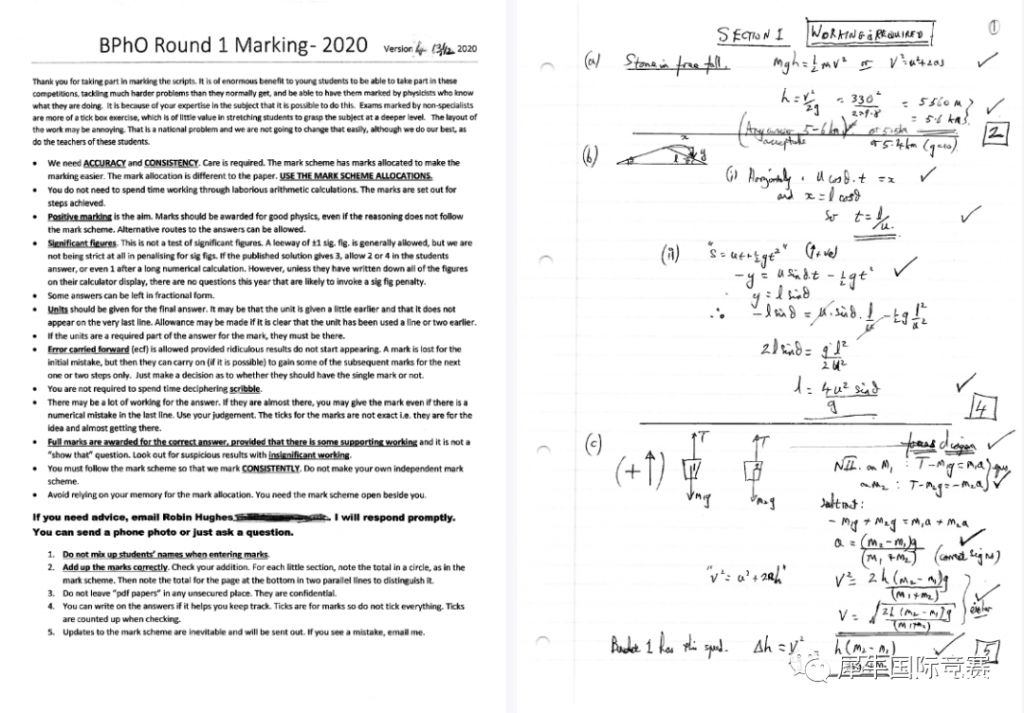 BPhO Round 1 Marking- 2020 Version 4 13/12 2020
Thank you for taking part in marking the scripts. It is of enormous benefit to young students to be able to take part in these
competitions, tackling much harder problems than they normally get, and be able to have them marked by physicists who know
what they are doing. It is because of your expertise in the subject that it is possible to do this. Exams marked by non-specialists
are more of a tick box exercise, which is of little value in stretching students to grasp the subject at a deeper level. The layout of
the work may be annoying. That is a national problem and we are not going to change that easily, although we do our best, as
do the teachers of these students.
• We need ACCURACY and CONSISTENCY. Care is required. The mark scheme has marks allocated to make the
marking easier. The mark allocation is different to the paper. USE THE MARK SCHEME ALLOCATIONS.
• You do not need to spend time working through laborious arithmetic calculations. The marks are set out for
steps achieved.
• Positive marking is the aim. Marks should be awarded for good physics, even if the reasoning does not follow
the mark scheme. Alternative routes to the answers can be allowed.
• Significant figures. This is not a test of significant figures. A leeway of ±1 sig. fig. is generally allowed, but we are
not being strict at all in penalising for sig figs. If the published solution gives 3, allow 2 or 4 in the students
answer, or even 1 after a long numerical calculation. However, unless they have written down all of the figures
on their calculator display, there are no questions this year that are likely to invoke a sig fig penalty.
• Some answers can be left in fractional form.
• Units should be given for the final answer. It may be that the unit is given a little earlier and that it does not
appear on the very last line. Allowance may be made if it is clear that the unit has been used a line or two earlier.
• If the units are a required part of the answer for the mark, they must be there.
• Error carried forward (ecf) is allowed provided ridiculous results do not start appearing. A mark is lost for the
initial mistake, but then they can carry on (if it is possible) to gain some of the subsequent marks for the next
one or two steps only. Just make a decision as to whether they should have the single mark or not.
• You are not required to spend time deciphering scribble.
• There may be a lot of working for the answer. If they are almost there, you may give the mark even if there is a
numerical mistake in the last line. Use your judgement. The ticks for the marks are not exact i.e. they are for the
idea and almost getting there.
• Full marks are awarded for the correct answer, provided that there is some supporting working and it is not a
"show that" question. Look out for suspicious results with insignificant working.
• You must follow the mark scheme so that we mark CONSISTENTLY. Do not make your own independent mark
scheme.
• Avoid relying on your memory for the mark allocation. You need the mark scheme open beside you.
If you need advice, email Robin Hughes . I will respond promptly.
You can send a phone photo or just ask a question.
1. Do not mix up students' names when entering marks.
2. Add up the marks correctly. Check your addition. For each little section, note the total in a circle, as in the
mark scheme. Then note the total for the page at the bottom in two parallel lines to distinguish it.
3. Do not leave "pdf papers" in any unsecured place. They are confidential.
4. You can write on the answers if it helps you keep track. Ticks are for marks so do not tick everything. Ticks
are counted up when checking.
5. Updates to the mark scheme are inevitable and will be sent out. If you see a mistake, email me.
SECTION 1 WORKING IS REQUIRED 1
(a) Stone in free fall. mgh = ½mv² or v² = u² + 2as ✓
h = v²/2g = 330²/2×9.8 = 5560 m ✓
= 5.6 km
(Any answer 5-6 km acceptable) or 5.4 km (g=10) 2
(b) x l y
(i) Horizontally, u cosθ.t = x ✓
and x = l cosθ
So t = l/u. ✓
(ii) "s = ut + ½gt²" (↑+ve)
-y = u sinθ.t - ½gt² ✓
y = l sinθ
∴ -l sinθ = u.sinθ.l/u - ½g l²/u²
2l sinθ = g l²/2 u²
l = 4u² sinθ/g ✓ 4
(c) (+↑) T T m₁g m₂g
diagram ✓
NII. on m₁ : T - m₁g = m₁a
on m₂ : T - m₂g = -m₂a ✓
subtract:
- m₁g + m₂g = m₁a + m₂a
a = (m₂ - m₁)g/(m₁ + m₂) ✓ (correct signs)
"v² = u² + 2ah" v² = 2h(m₂ - m₁)g/(m₁ + m₂)
v = √2h(m₂ - m₁)g/(m₁+m₂) ✓ either
Bucket 1 has this speed. Δh = v² h(m₂ - m₁) ✓ 5
摩华国际竞赛